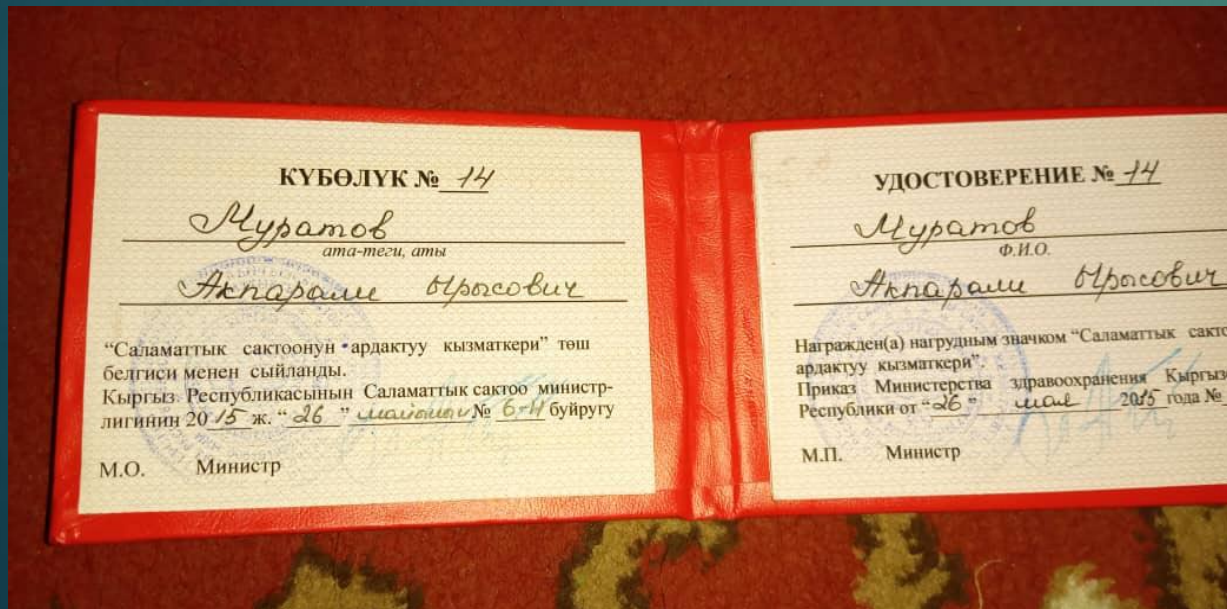 КҮБӨЛҮК № 14
Муратов
ата-теги, аты
Акпарали Ырысович
“Саламаттык сактоонун ардактуу кызматкери” төш
белгиси менен сыйланды.
Кыргыз Республикасынын Саламаттык сактоо министр-
лигинин 2015 ж. “26” № 6-Н буйругу
М.О. Министр
УДОСТОВЕРЕНИЕ № 14
Муратов
Ф.И.О.
Акпарали Ырысович
Награжден(а) нагрудным значком “Саламаттык
ардактуу кызматкери”.
Приказ Министерства здравоохранения
Республики от “26” мая 2015 года №
М.П. Министр